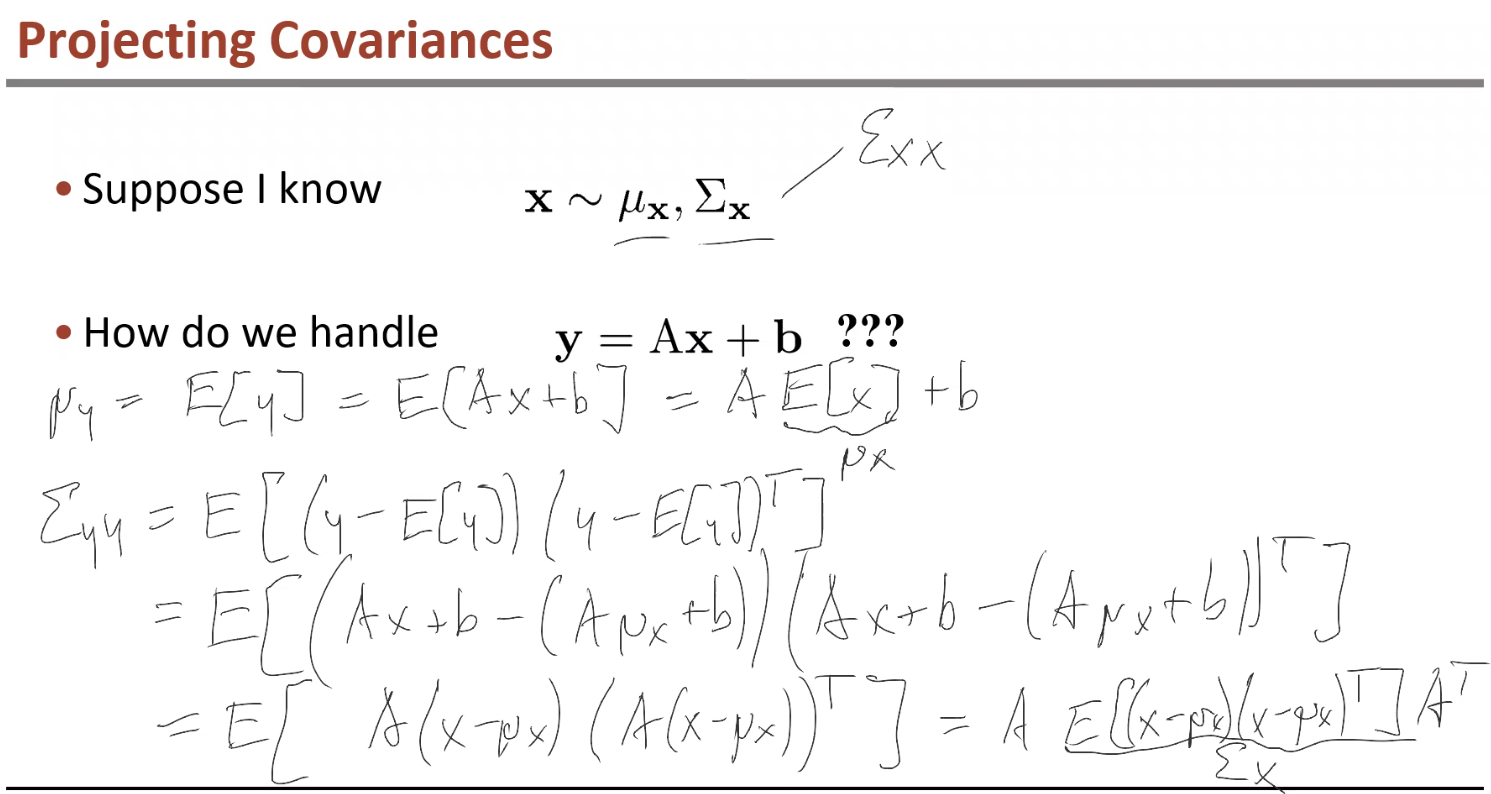 Projecting Covariances
Σxx
• Suppose I know x ∼ μx, Σx
• How do we handle y = Ax + b ???
μy = E[y] = E[Ax+b] = A E[x] + b
μx
Σyy = E[(y − E[y]) (y − E[y])ᵀ]
= E[(Ax+b − (Aμx+b)) (Ax+b − (Aμx+b))ᵀ]
= E[ A(x−μx) (A(x−μx))ᵀ] = A E[(x−μx)(x−μx)ᵀ] Aᵀ
Σx